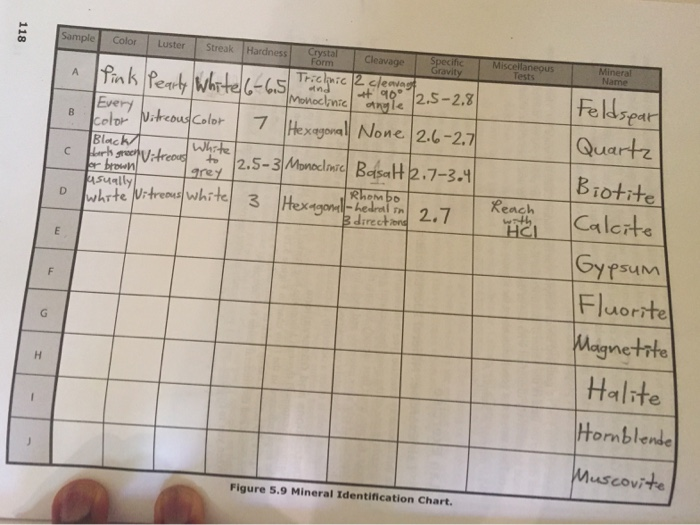 118
Sample Color Luster Streak Hardness Crystal Form Cleavage Specific Gravity Miscellaneous Tests Mineral Name
A Pink Pearly White 6-6.5 Triclinic and Monoclinic 2 cleavage at 90° angle 2.5-2.8 Feldspar
B Every color Vitreous Color 7 Hexagonal None 2.6-2.7 Quartz
C Black/ dark green or brown Vitreous White to grey 2.5-3 Monoclinic Basalt 2.7-3.4 Biotite
D usually white Vitreous White 3 Hexagonal Rhombo-hedral in 3 directions 2.7 Reach with HCl Calcite
E Gypsum
F Fluorite
G Magnetite
H Halite
I Hornblende
J Muscovite
Figure 5.9 Mineral Identification Chart.